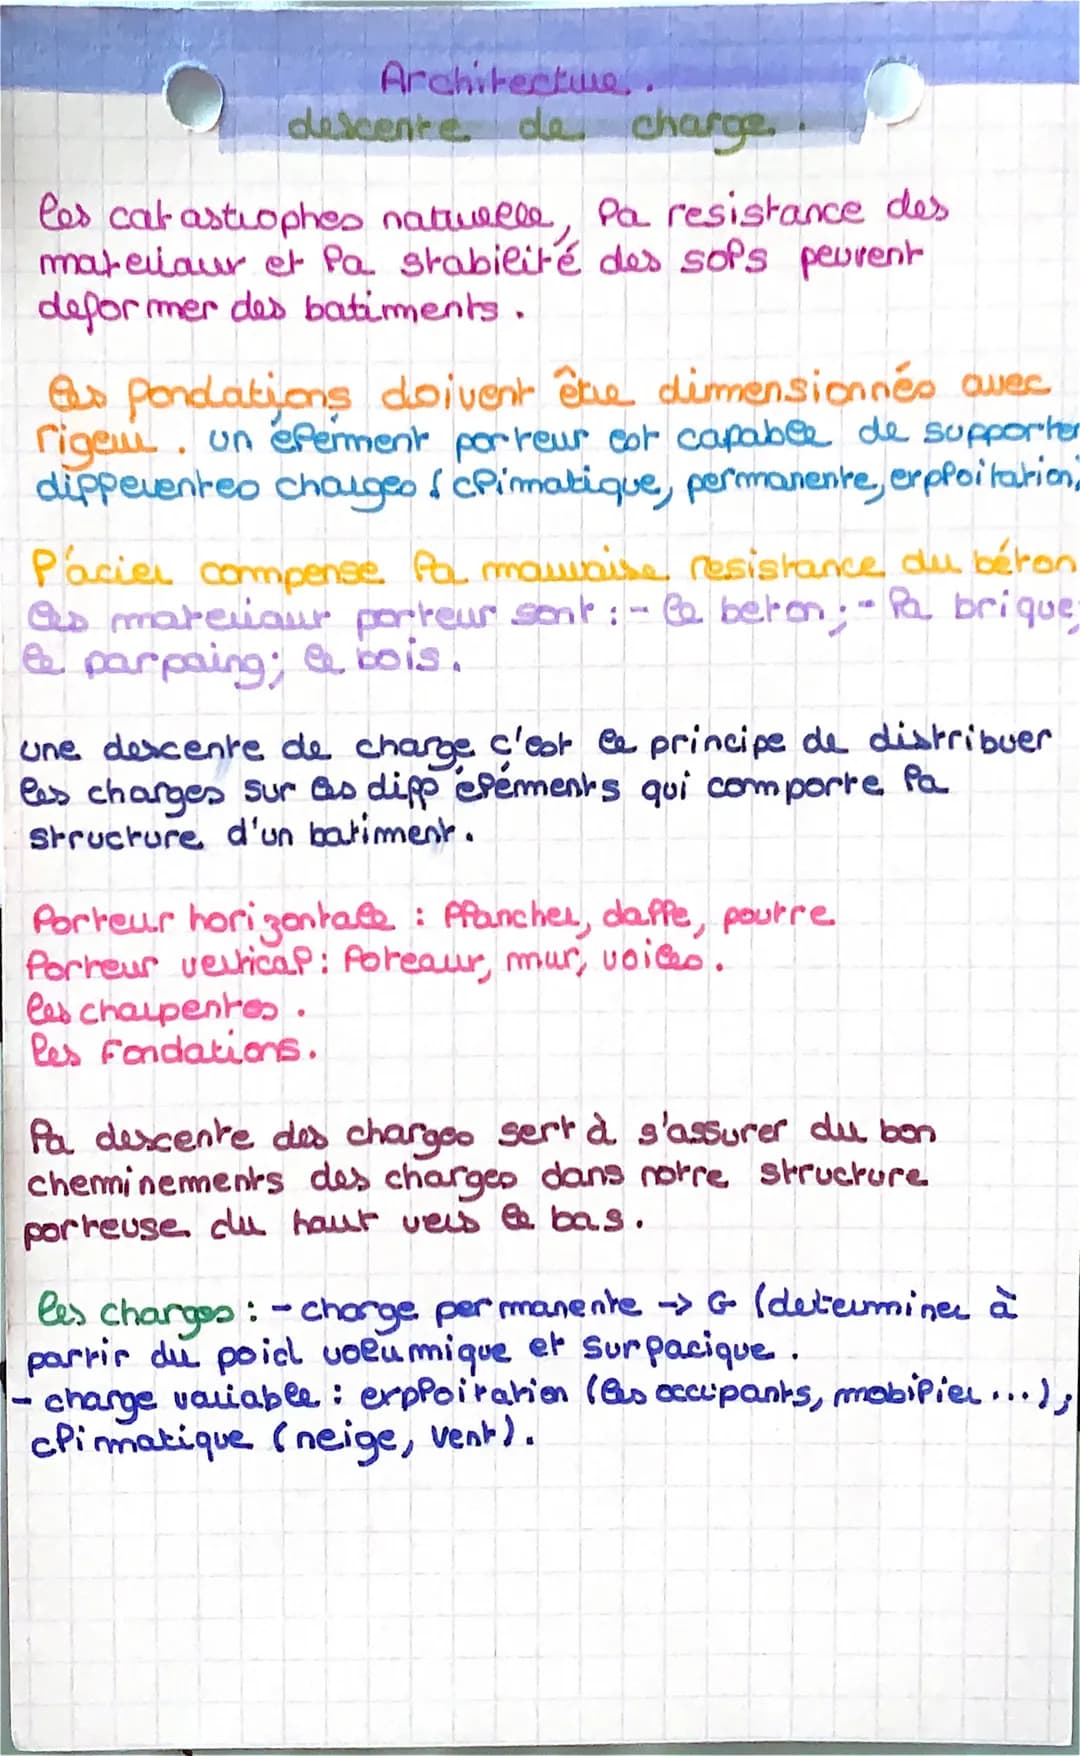 Architecture.
descente de charge.
les catastrophes naturelle, la resistance des
materiaux et la stabilité des sols peuvent
deformer des batiments.
les fondations doivent être dimensionnés avec
rigeur. un élément porteur est capable de supporter
differentes charges ( climatique, permanente, exploitation,
l'acier compense la mauvaise resistance du béton
les materiaux porteur sont : - le beton ; - la brique;
le parpaing; le bois.
une descente de charge c'est le principe de distribuer
les charges sur les diff éléments qui comporte la
structure d'un batiment.
Porteur horizontale : Plancher, dalle, poutre
Porteur vertical : Poteaux, mur, voiles.
les charpentes.
les fondations.
la descente des charges sert à s'assurer du bon
cheminements des charges dans notre structure
porteuse du haut vers le bas.
les charges : - charge permanente → G (determiner à
partir du poid volumique et surfacique.
- charge variable : exploitation (les occupants, mobilier ...);
climatique (neige, vent).